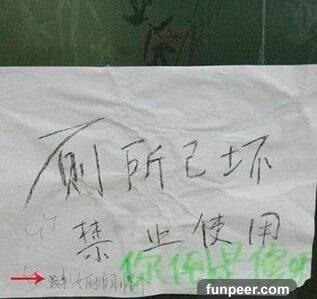 厕所已坏
禁止使用
你倒是修啊
funpeer.com